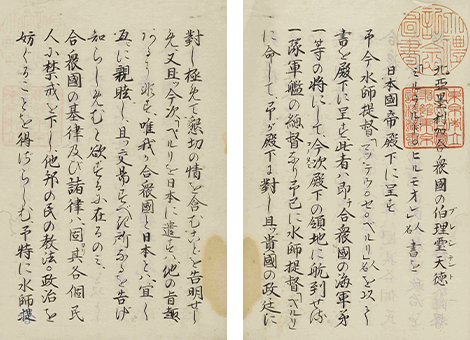 北亜墨利加合衆國の伯理璽天德
プレシデント
日本國帝殿下に呈す
書を殿下に呈す此者ハ即ち合衆國の海軍第
一等の將にして、今次殿下の領地に航到せる
一隊軍艦の總督なり予已に水師提督「ペルリ」
に命して、予が殿下に對し且貴國の政廷に
對し極めて懇切の情を含むことを告明せし
め又且つ今次「ペルリ」を日本に遣すハ他の旨趣
あるに非す唯我か合衆國と日本とハ宜く
互に親睦し且つ交易すべき所なるを告げ
知らしめむと欲するに在るのミ、
合衆國の基律及び諸律ハ固其各個民
人に禁戒を下し他邦の民の教法、政治を
妨ぐることを得ざらしむ予特に水師提